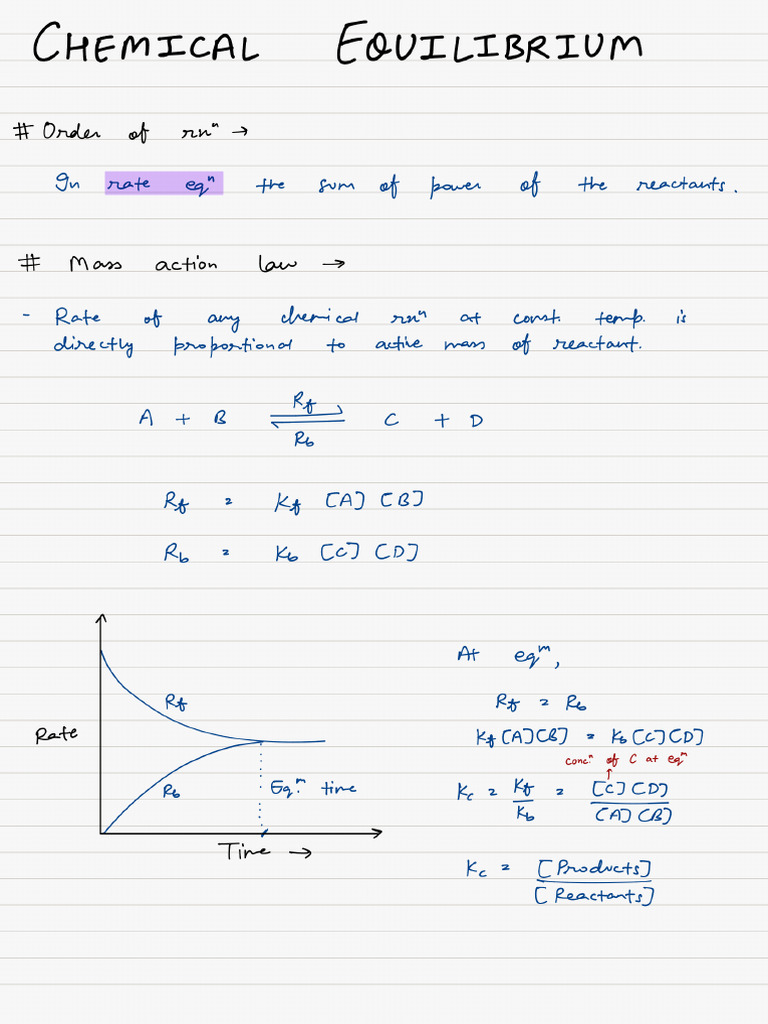 CHEMICAL EQUILIBRIUM
# Order of rxnⁿ →
In rate eqⁿ the sum of power of the reactants.
# Mass action law →
- Rate of any chemical rxnⁿ at const. temp. is
directly proportional to active mass of reactant.
A + B ⇌ C + D
R_f
R_b
R_f = K_f [A] [B]
R_b = K_b [C] [D]
Rate
R_f
R_b
Eqᵐ. time
Time →
At eqᵐ,
R_f = R_b
K_f [A] [B] = K_b [C] [D]
concⁿ. of C at eqᵐ
↑
K_c = K_f / K_b = [C] [D] / [A] [B]
K_c = [Products] / [Reactants]